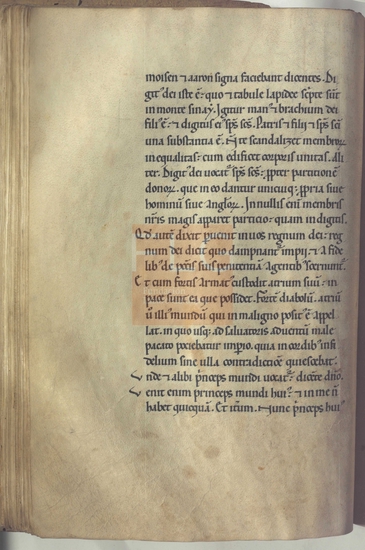 moisen ⁊ aaron signa faciebant dicentes. Di
git᷒ dei iste ē. quo ⁊ tabule lapidee scpte sūt
in monte sinay. Igitur man᷒ ⁊ brachium dei
fili᷒ ē. ⁊ digitus ei᷒ sp̄s sc̄s. Patris ⁊ filii ⁊ sp̄s sc̄i
una substantia ē. N te scandalizet membror
inequalitas. cum edificet corporis unitas. Ali
ter. Digit᷒ dei uocat᷑ sp̄s sc̄s. ꝓpter partitionē
donoꝝ. que in eo dantur unicuiq;. ꝓpria siue
hominū siue angloꝝ. In nullis eni membris
nr̄is magis apparet partitio. quam in digitis.
Qd autē dixit puenit in uos regnum dei. reg
num dei dicit quo dampnant᷑ impii. ⁊ a fide
lib᷒ de pccīs suis penitentiā agentib᷒
Et cum fortis armat᷒ custodit atrium suū. in
pace sunt ea que possidet. Fortē diabolū. atriū
ū illi᷒ mundū qui in maligno posit᷒ ē appel
lat. in quo usq; ad saluatoris aduentū male
pacato imperio. quia in cordib᷒ infi
delium sine ulla contradictiōe quiescebat.
Vnde ⁊ alibi pinceps mundi uocat᷑. dicēte dn̄o.
Venit enim princeps mundi hui᷒. ⁊ in me ñ
habet quicquā. Et itūm. Nunc pinceps hui᷒